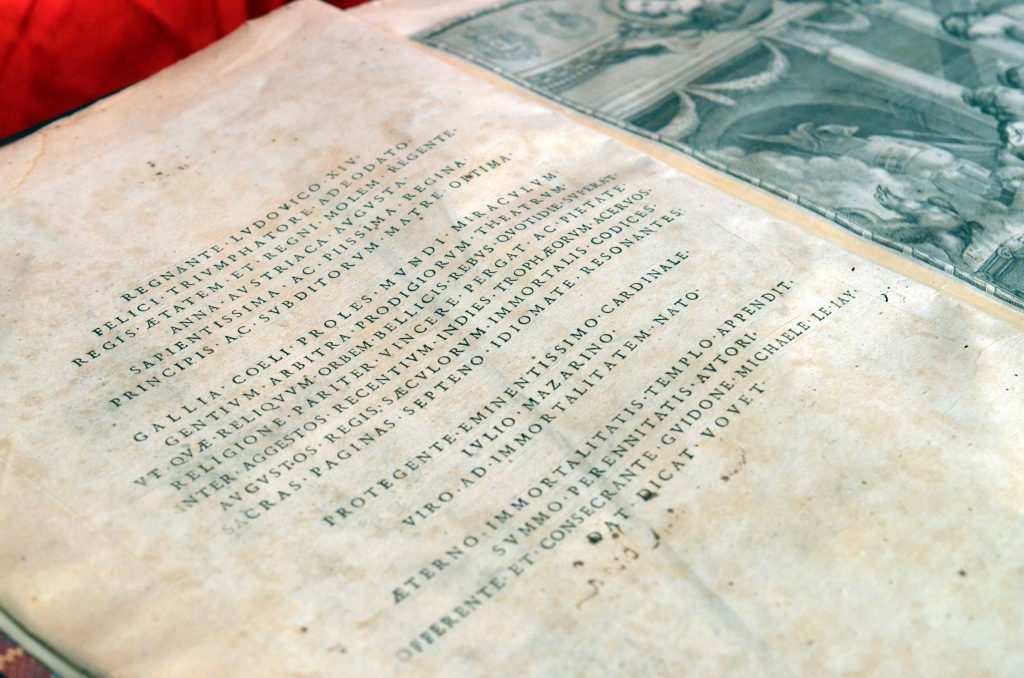 REGNANTE · LVDOVICO · XIV ·
FELICI · TRIVMPHATORE · ADEODATO ·
REGIS · ÆTATEM · ET · REGNI · MOLEM · REGENTE ·
ANNA · AVSTRIACA · AVGVSTA ·
SAPIENTISSIMA · AC · PIISSIMA · REGINA ·
PRINCIPIS · AC · SVBDITORVM · MATRE · OPTIMA ·
GALLIA · COELI · PROLES · MVNDI · MIRACVLVM ·
GENTIVM · ARBITRA · PRODIGIORVM · THEATRVM ·
VT · QVÆ · RELIQVVM · ORBEM · BELLICIS · REBVS · QVOTIDIE · SVPERAT ·
RELIGIONE · PARITER · VINCERE · PERGAT · AC · PIETATE ·
INTER · AGGESTOS · RECENTIVM · INDIES · TROPHÆORVM · ACERVOS ·
AVGVSTOS · REGIS · SÆCVLORVM · IMMORTALIS · CODICES ·
SACRAS · PAGINAS · SEPTENO · IDIOMATE · RESONANTES ·
PROTEGENTE · EMINENTISSIMO · CARDINALE ·
IVLIO · MAZARINO ·
VIRO · AD · IMMORTALITATEM · NATO ·
ÆTERNO · IMMORTALITATIS · TEMPLO · APPENDIT ·
SVMMO · PERENNITATIS · AVTORI ·
OFFERENTE · ET · CONSECRANTE · GVIDONE · MICHAELE · LE · IAY ·
DAT · DICAT · VOVET ·